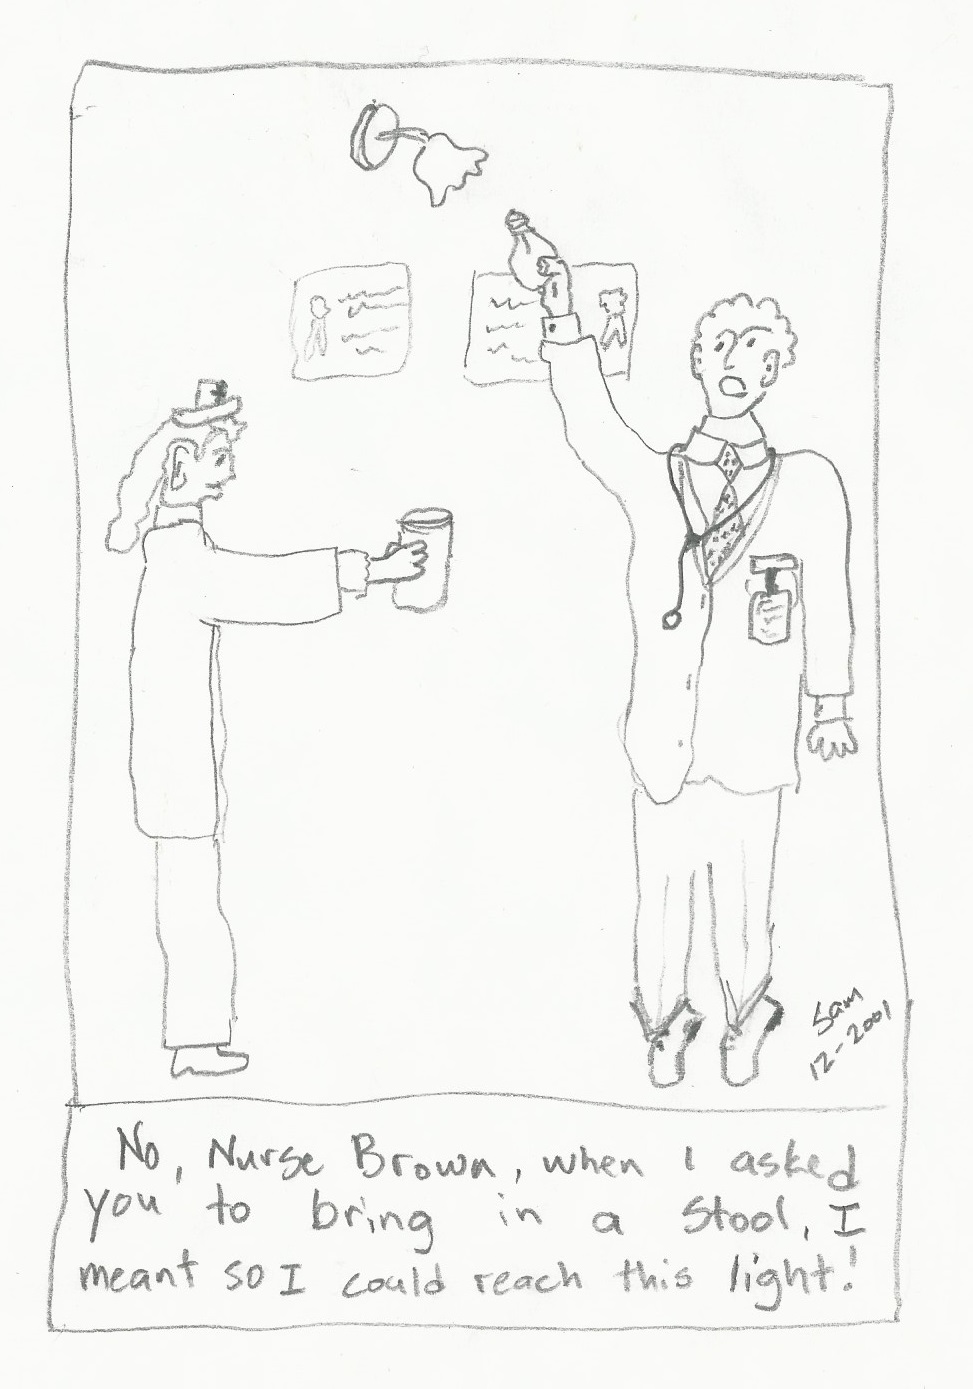 Sam
12-2001
No, Nurse Brown, when I asked
you to bring in a stool, I
meant so I could reach this light!